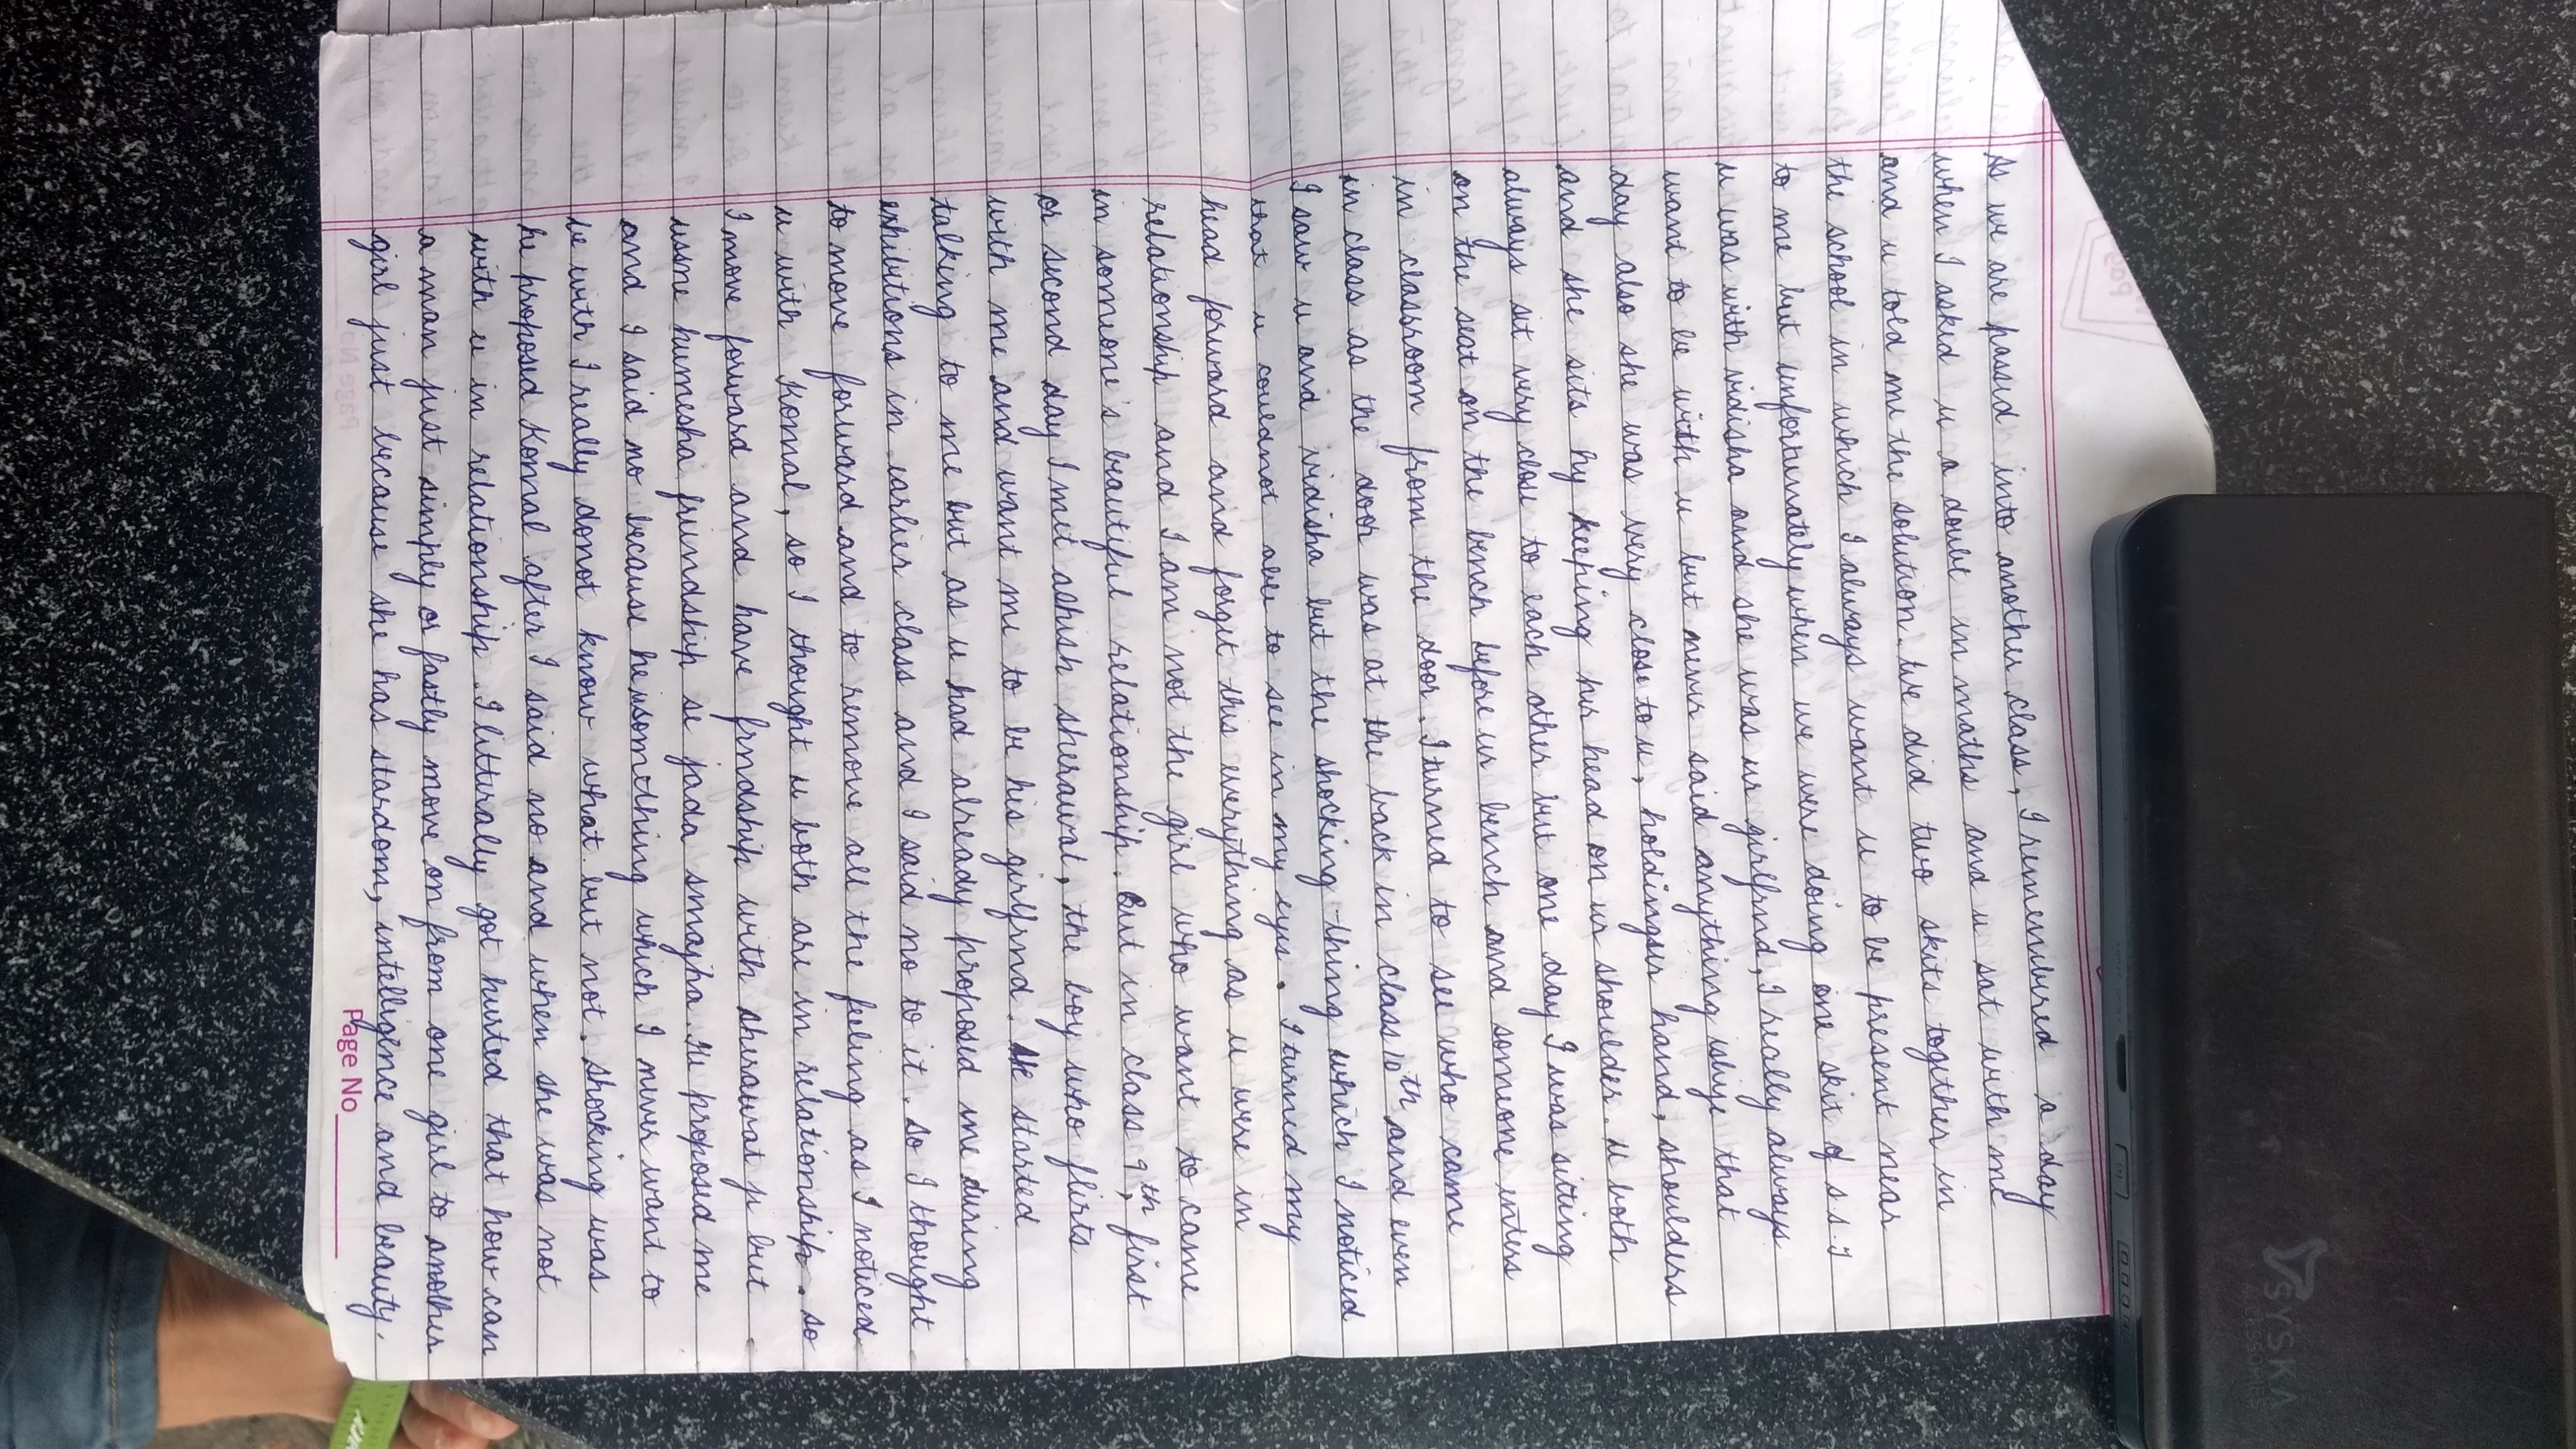 As we are passed into another class, I remembured a day
when I asked u a doubt in maths and u sat with me
and u told me the solution. We did two skits together in
the school in which I always want u to be present near
to me but unfortunately when we were doing one skit of s.s.y
u was with vidisha and she was ur girlfrnd, I really always
want to be with u but never said anything islye that
day also she was very close to u, holdingur hand, shoulders
and she sits by keeping hr head on ur shoulder. u both
always sit very close to each other but one day I was sitting
on the seat on the bench before ur bench and someone enters
in classroom from the door. I turned to see who came
in class as the door was at the back in class 10th and even
I saw u and vidisha but the shocking thing which I noticed
that u couldnot aver to see in my eyes. I turned my
head forward and forget this everything as u were in
relationship and I am not the girl who want to came
in someone's beautiful relationship. But in class 9th, first
or second day I met ashish sherawat, the boy who flirts
with me and want me to be his girlfrnd. started
talking to me but as u had already proposed me during
exhibitions in earlier class and I said no to it. So I thought
to move forward and to remove all the feeling as I noticed
u with Komal, so I thought u both are in relationship. so
I move forward and have frndship with sherawat ju but
usne humesha friendship se jada smajha. He proposed me
and I said no because he isomething which I never want to
be with I really donot know what but not. shocking was
he proposed Komal after I said no and when she was not
with u in relationship. I litturally got hurted that how can
a man just simply or fastly move on from one girl to another
girl just because she has stardom, intelligence and beauty.
Page No
SYSKA
ACCESSORIES